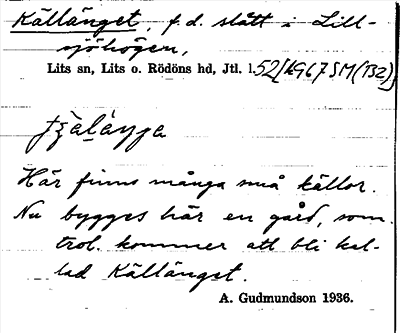 Källänget, f.d. slått i Lill-
sjöhögen,
Lits sn, Lits o. Rödöns hd, Jtl. 1.52/1967 SM (TBZ)
Här finns många små källor.
Nu bygges här en gård, som
trol. kommer att bli kal-
lad Källänget.
A. Gudmundson 1936.